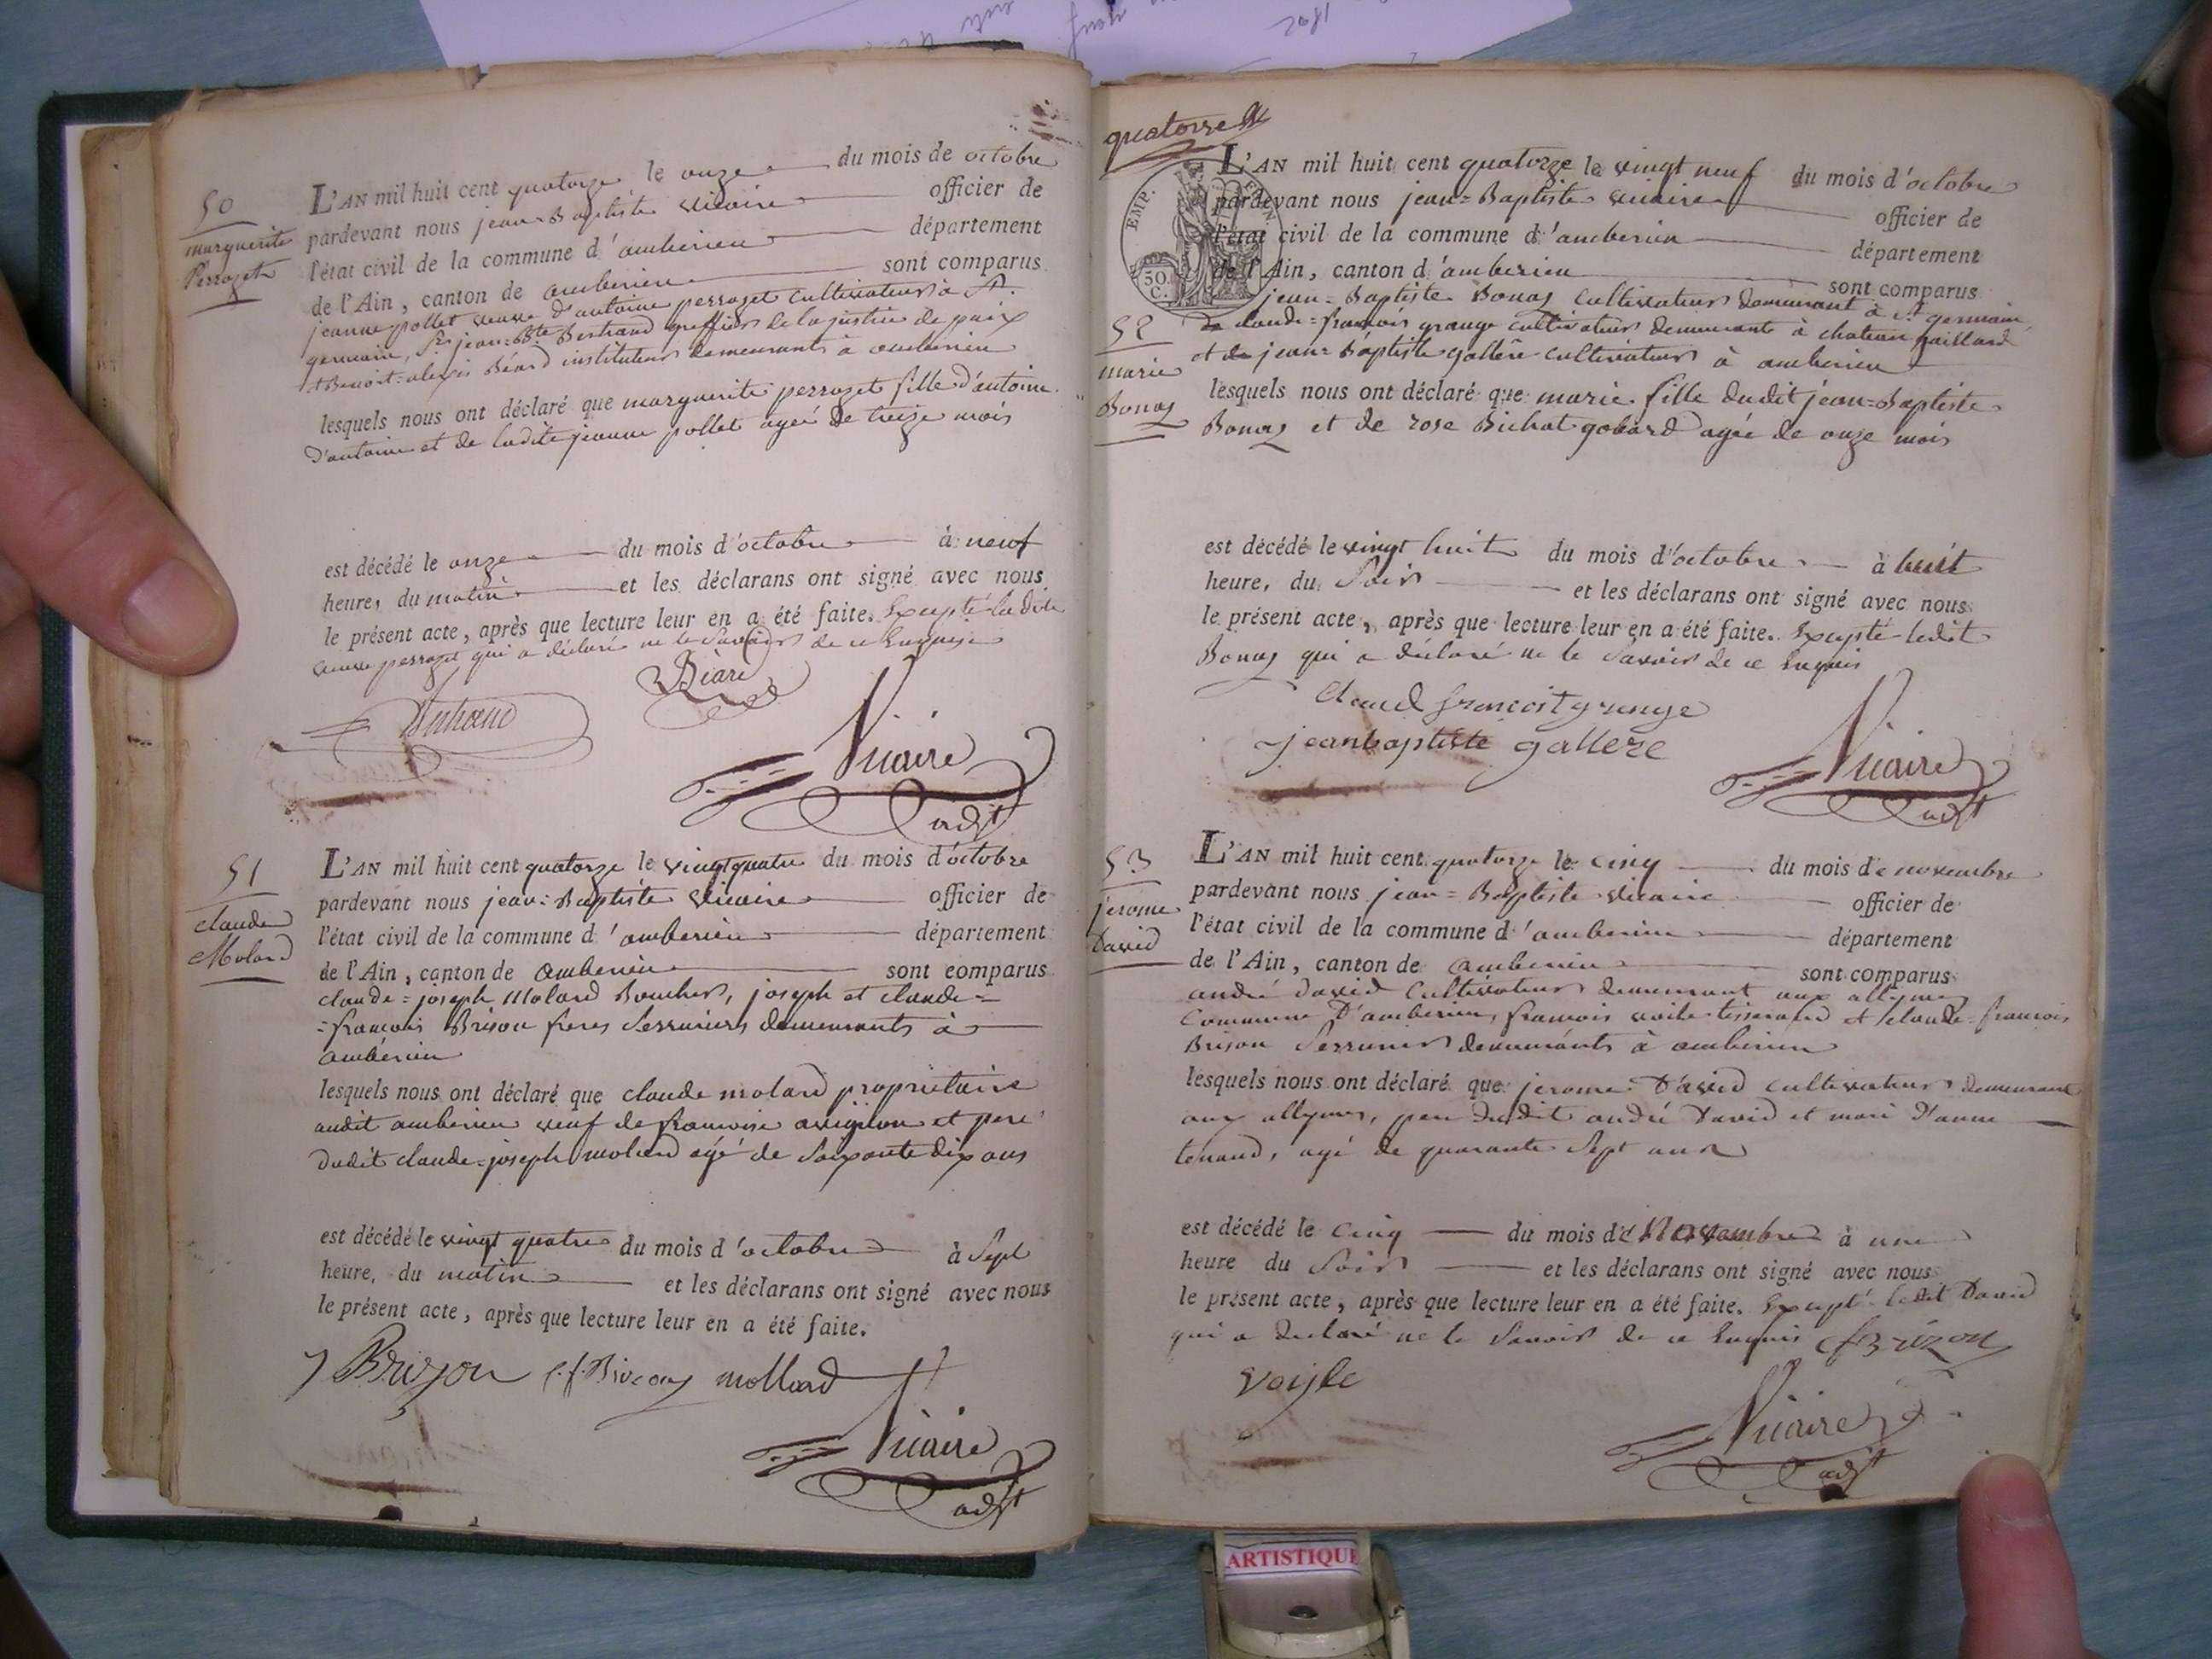 50
marguerite
Perrozet
L'AN mil huit cent quatorze le onze du mois de octobre
pardevant nous jean=Baptiste vicaire officier de
l'état civil de la commune d'amberieu département
de l'Ain, canton de amberieu sont comparus
jeanne pollet veuve d'antoine perrozet cultivateur à St.
germain, Sr jean=Bte Bertrand greffier de la justice de paix
et Benoit=alexis Béard instituteur demeurants à amberieu
lesquels nous ont déclaré que marguerite perrozet fille d'antoine
d'antoine et de ladite jeanne pollet agée de treize mois
est décédé le onze du mois d'octobre à neuf
heure, du matin et les déclarans ont signé avec nous
le présent acte, après que lecture leur en a été faite. Excepté ladite
veuve perrozet qui a déclaré ne le savoir de ce Enquise
Béard
Bertrand
Vicaire
adjt
51
claude
Molard
L'AN mil huit cent quatorze le vingtquatre du mois d'octobre
pardevant nous jean=Baptiste vicaire officier de
l'état civil de la commune d'amberieu département
de l'Ain, canton de amberieu sont comparus
claude=joseph Molard Boucher, joseph et claude=
=françois Brison freres Serruriers demeurants à
ambérieu
lesquels nous ont déclaré que claude molard propriétaire
audit amberieu veuf de françoise avignon et pere
dudit claude=joseph molard agé de Soixante dix ans
est décédé le vingt quatre du mois d'octobre à Sept
heure, du matin et les déclarans ont signé avec nous
le présent acte, après que lecture leur en a été faite.
J Brizon c.f. Brizon mollard
Vicaire
adjt
quatorze
EMP.
50
C.
L'AN mil huit cent quatorze le vingt neuf du mois d'octobre
pardevant nous jean=Baptiste vicaire officier de
l'état civil de la commune d'amberieu département
de l'Ain, canton d'amberieu sont comparus
52
marie
Bonaz
jean=Baptiste Bonaz cultivateur demeurant à St germain,
de claude=françois grange cultivateur demeurant à chateau gaillard
et de jean=Baptiste gallere cultivateur à amberieu
lesquels nous ont déclaré que marie fille dudit jean=Baptiste
Bonaz et de rose Bichat gobard agée de onze mois
est décédé le vingt huit du mois d'octobre à huit
heure, du Soir et les déclarans ont signé avec nous
le présent acte, après que lecture leur en a été faite. Excepté ledit
Bonaz qui a déclaré ne le Savoir de ce Enquis
claud francoit grange
jeanbaptiste gallere
Vicaire
adjt
53
jerome
David
L'AN mil huit cent quatorze le cinq du mois de novembre
pardevant nous jean=Baptiste vicaire officier de
l'état civil de la commune d'amberieu département
de l'Ain, canton de amberieu sont comparus
andré David cultivateur demeurant aux allymes
commune d'amberieu, françois voile tisserand et claude=françois
Brison Serrurier demeurants à amberieu
lesquels nous ont déclaré que jerome David cultivateur demeurant
aux allymes, pere dudit andré David et mari d'anne
tenand, agé de quarante Sept ans
est décédé le cinq du mois de Novembre à une
heure du Soir et les déclarans ont signé avec nous
le présent acte, après que lecture leur en a été faite. Excepté ledit David
qui a declaré ne le Savoir de ce Enquis cf Brizon
voyle
Vicaire
adjt
ARTISTIQUE